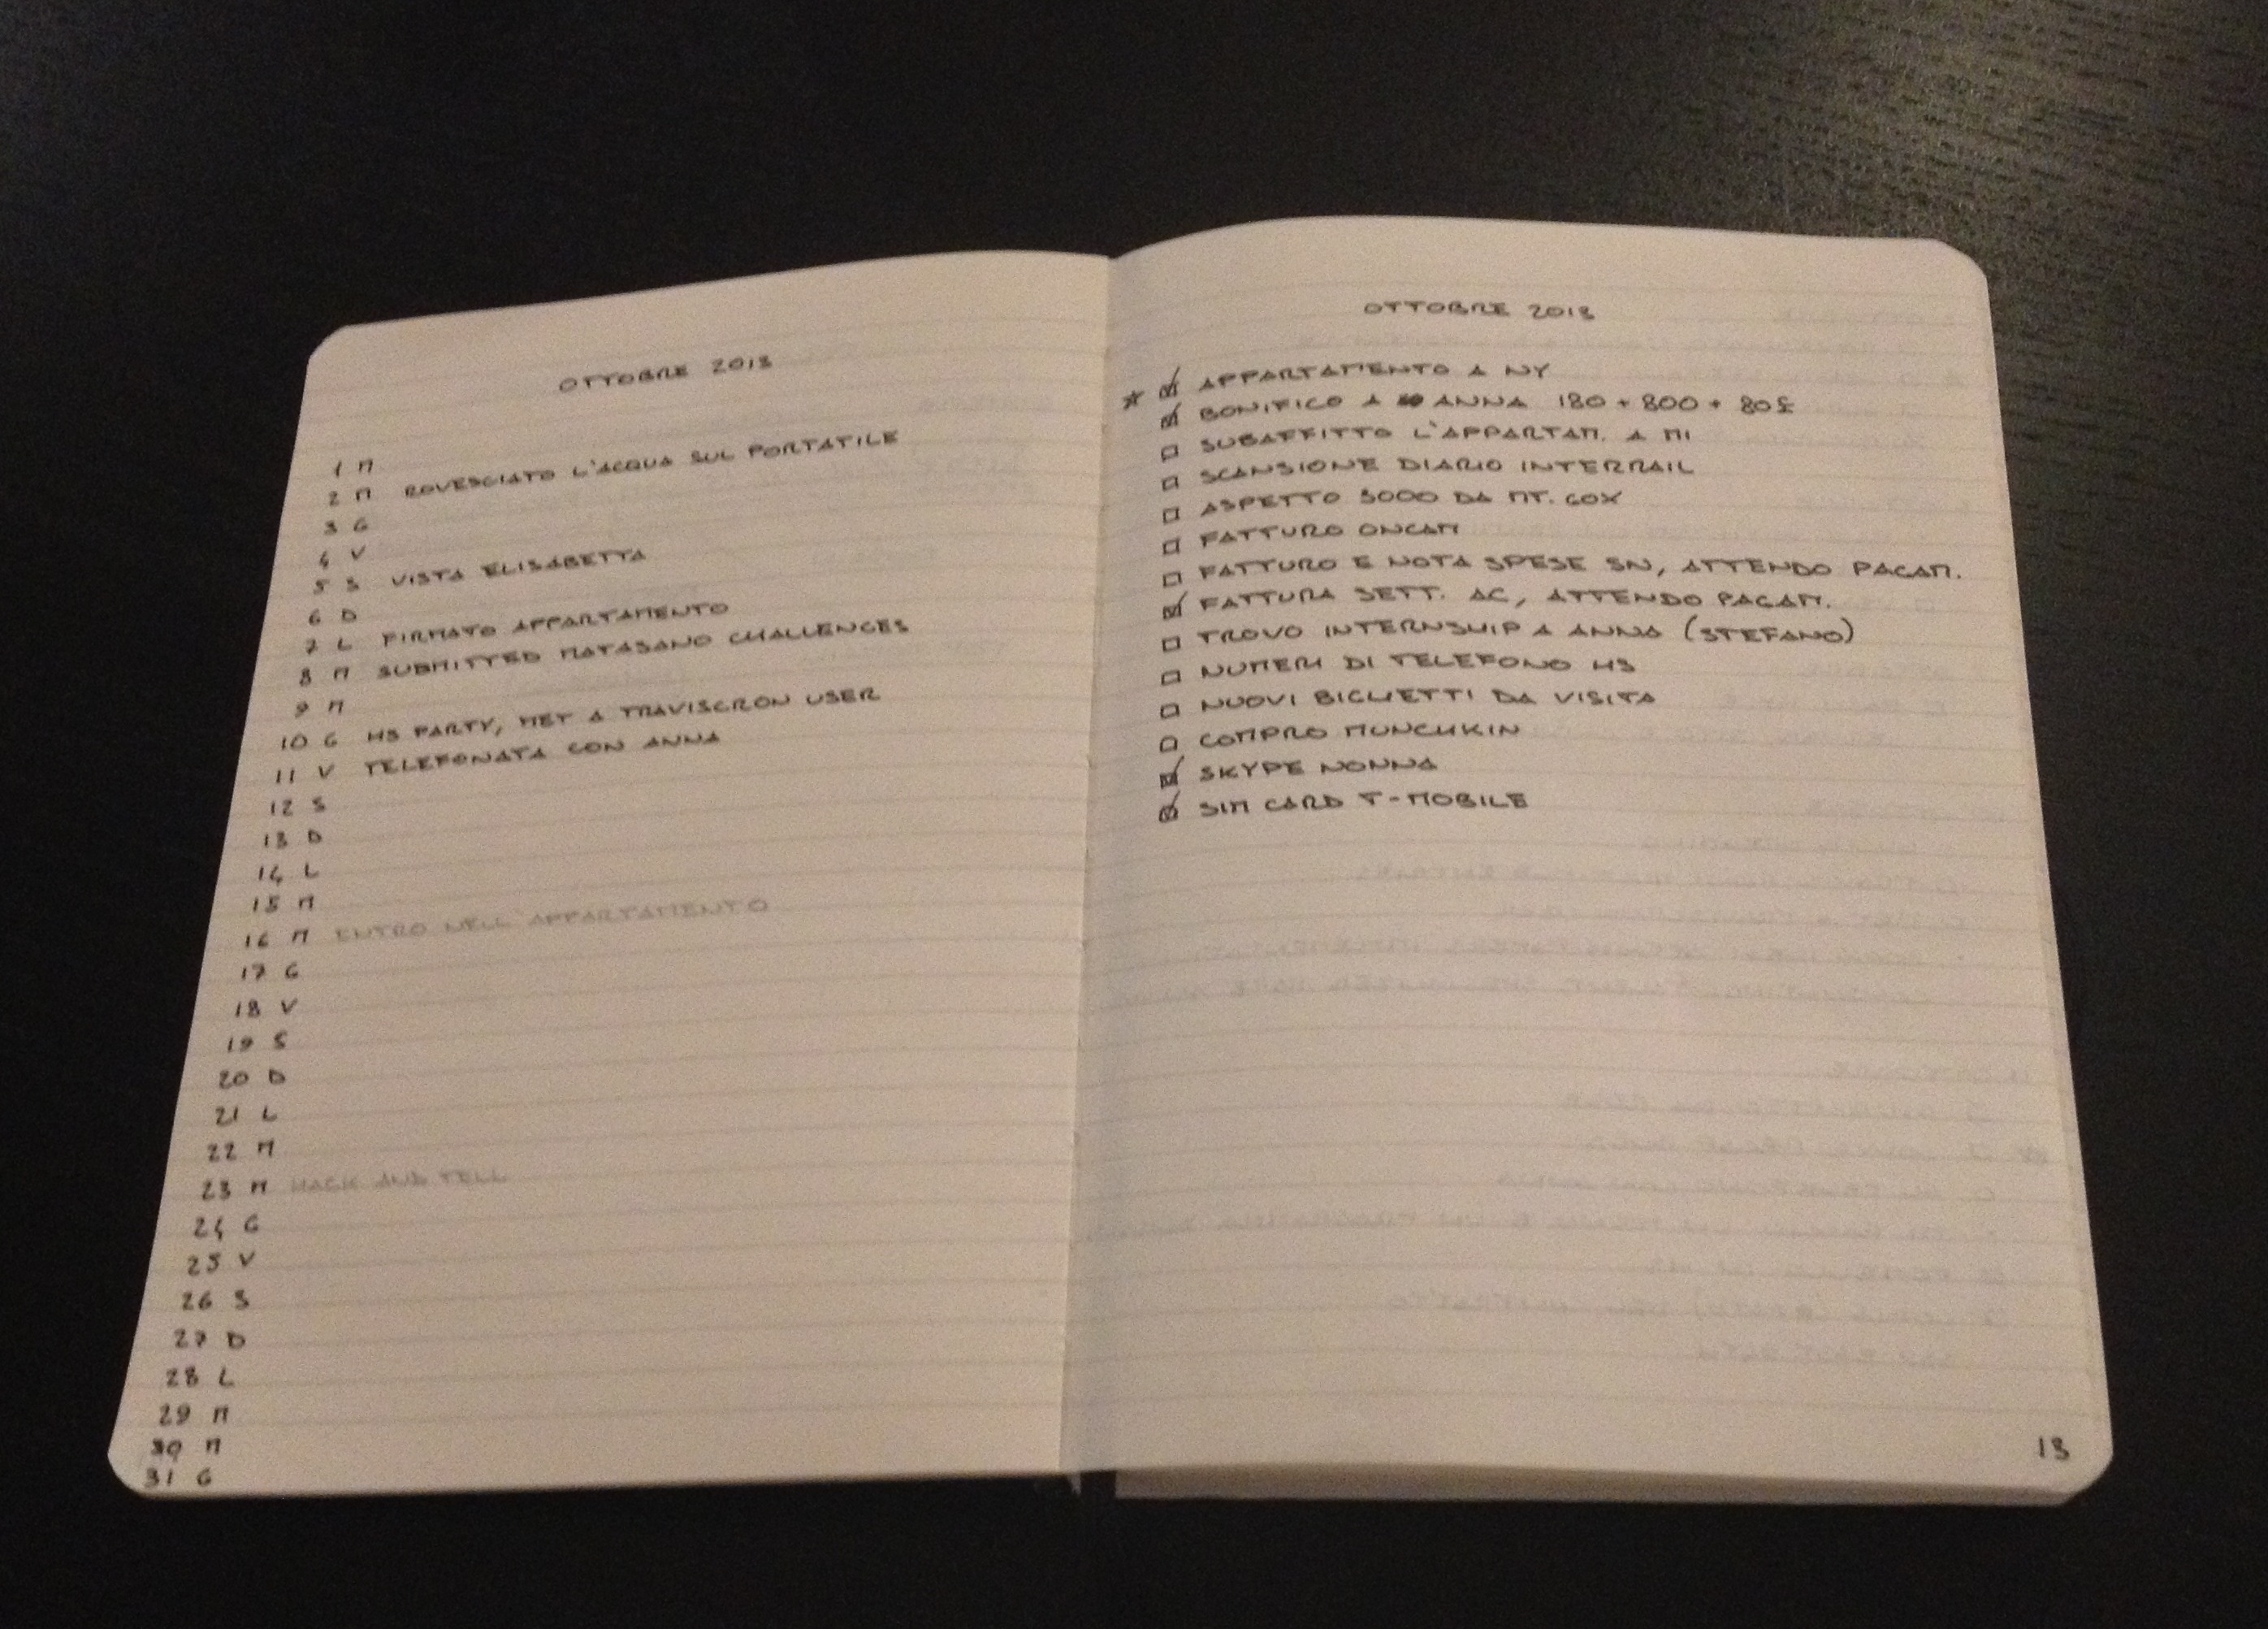 OTTOBRE 2013
1 M
2 M ROVESCIATO L'ACQUA SUL PORTATILE
3 G
4 V
5 S VISTA ELISABETTA
6 D
7 L FIRMATO APPARTAMENTO
8 M SUBMITTED MATASANO CHALLENGES
9 M
10 G HS PARTY, MET A TRAVISCRON USER
11 V TELEFONATA CON ANNA
12 S
13 D
14 L
15 M
16 M ENTRO NELL'APPARTAMENTO
17 G
18 V
19 S
20 D
21 L
22 M
23 M HACK AND TELL
24 G
25 V
26 S
27 D
28 L
29 M
30 M
31 G
OTTOBRE 2013
★ ☑ APPARTAMENTO A NY
☑ BONIFICO A ANNA 180 + 800 + 80£
☐ SUBAFFITTO L'APPARTAM. A MI
☐ SCANSIONE DIARIO INTERRAIL
☐ ASPETTO 5000 DA MT. GOX
☐ FATTURO ONCAM
☐ FATTURO E NOTA SPESE SN, ATTENDO PAGAM.
☑ FATTURA SETT. AC, ATTENDO PAGAM.
☐ TROVO INTERNSHIP A ANNA (STEFANO)
☐ NUMERI DI TELEFONO HS
☐ NUOVI BIGLIETTI DA VISITA
☐ COMPRO MUNCHKIN
☑ SKYPE NONNA
☑ SIM CARD T-MOBILE
13